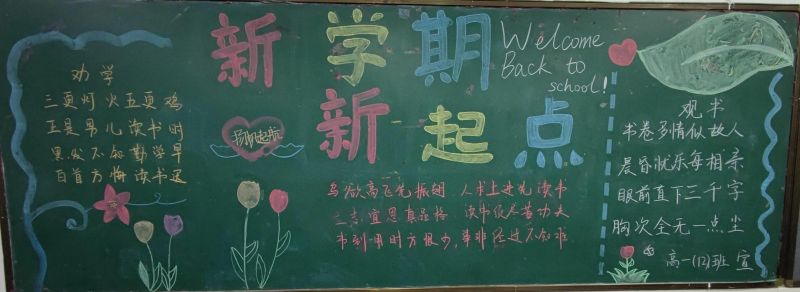 劝学
三更灯火五更鸡
正是男儿读书时
黑发不知勤学早
百首方悔读书迟
新学期
新起点
Welcome
Back to
school!
扬帆起航
鸟欲高飞先振翅 人求上进先读书
立志宜思真品格 读书须尽苦功夫
书到用时方恨少,事非经过不知难
观书
书卷多情似故人
晨昏忧乐每相亲
眼前直下三千字
胸次全无一点尘
高一(12)班 宣